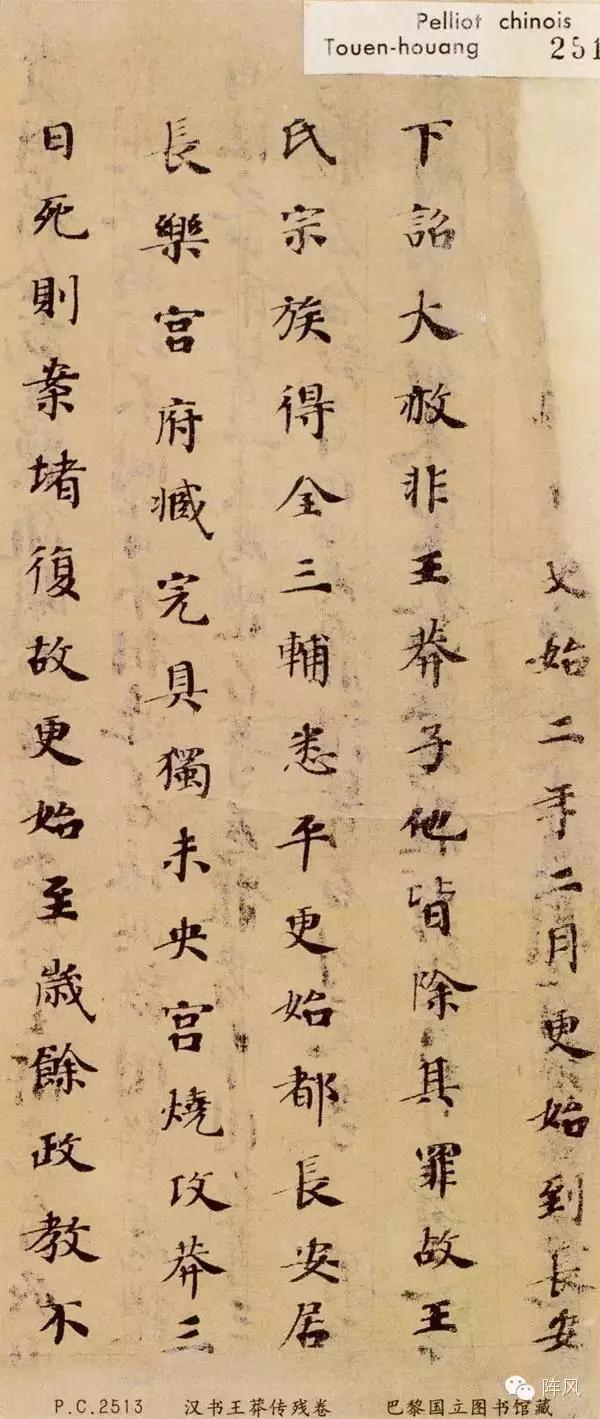 Pelliot chinois
Touen-houang 251
始二年二月更始到長安
下詔大赦非王莽子他皆除其罪故王
氏宗族得全三輔悉平更始都長安居
長樂宮府臧完具獨未央宮燒攻莽三
日死則案堵復故更始至歲餘政教不
阵风
P.C.2513 汉书王莽传残卷 巴黎国立图书馆藏